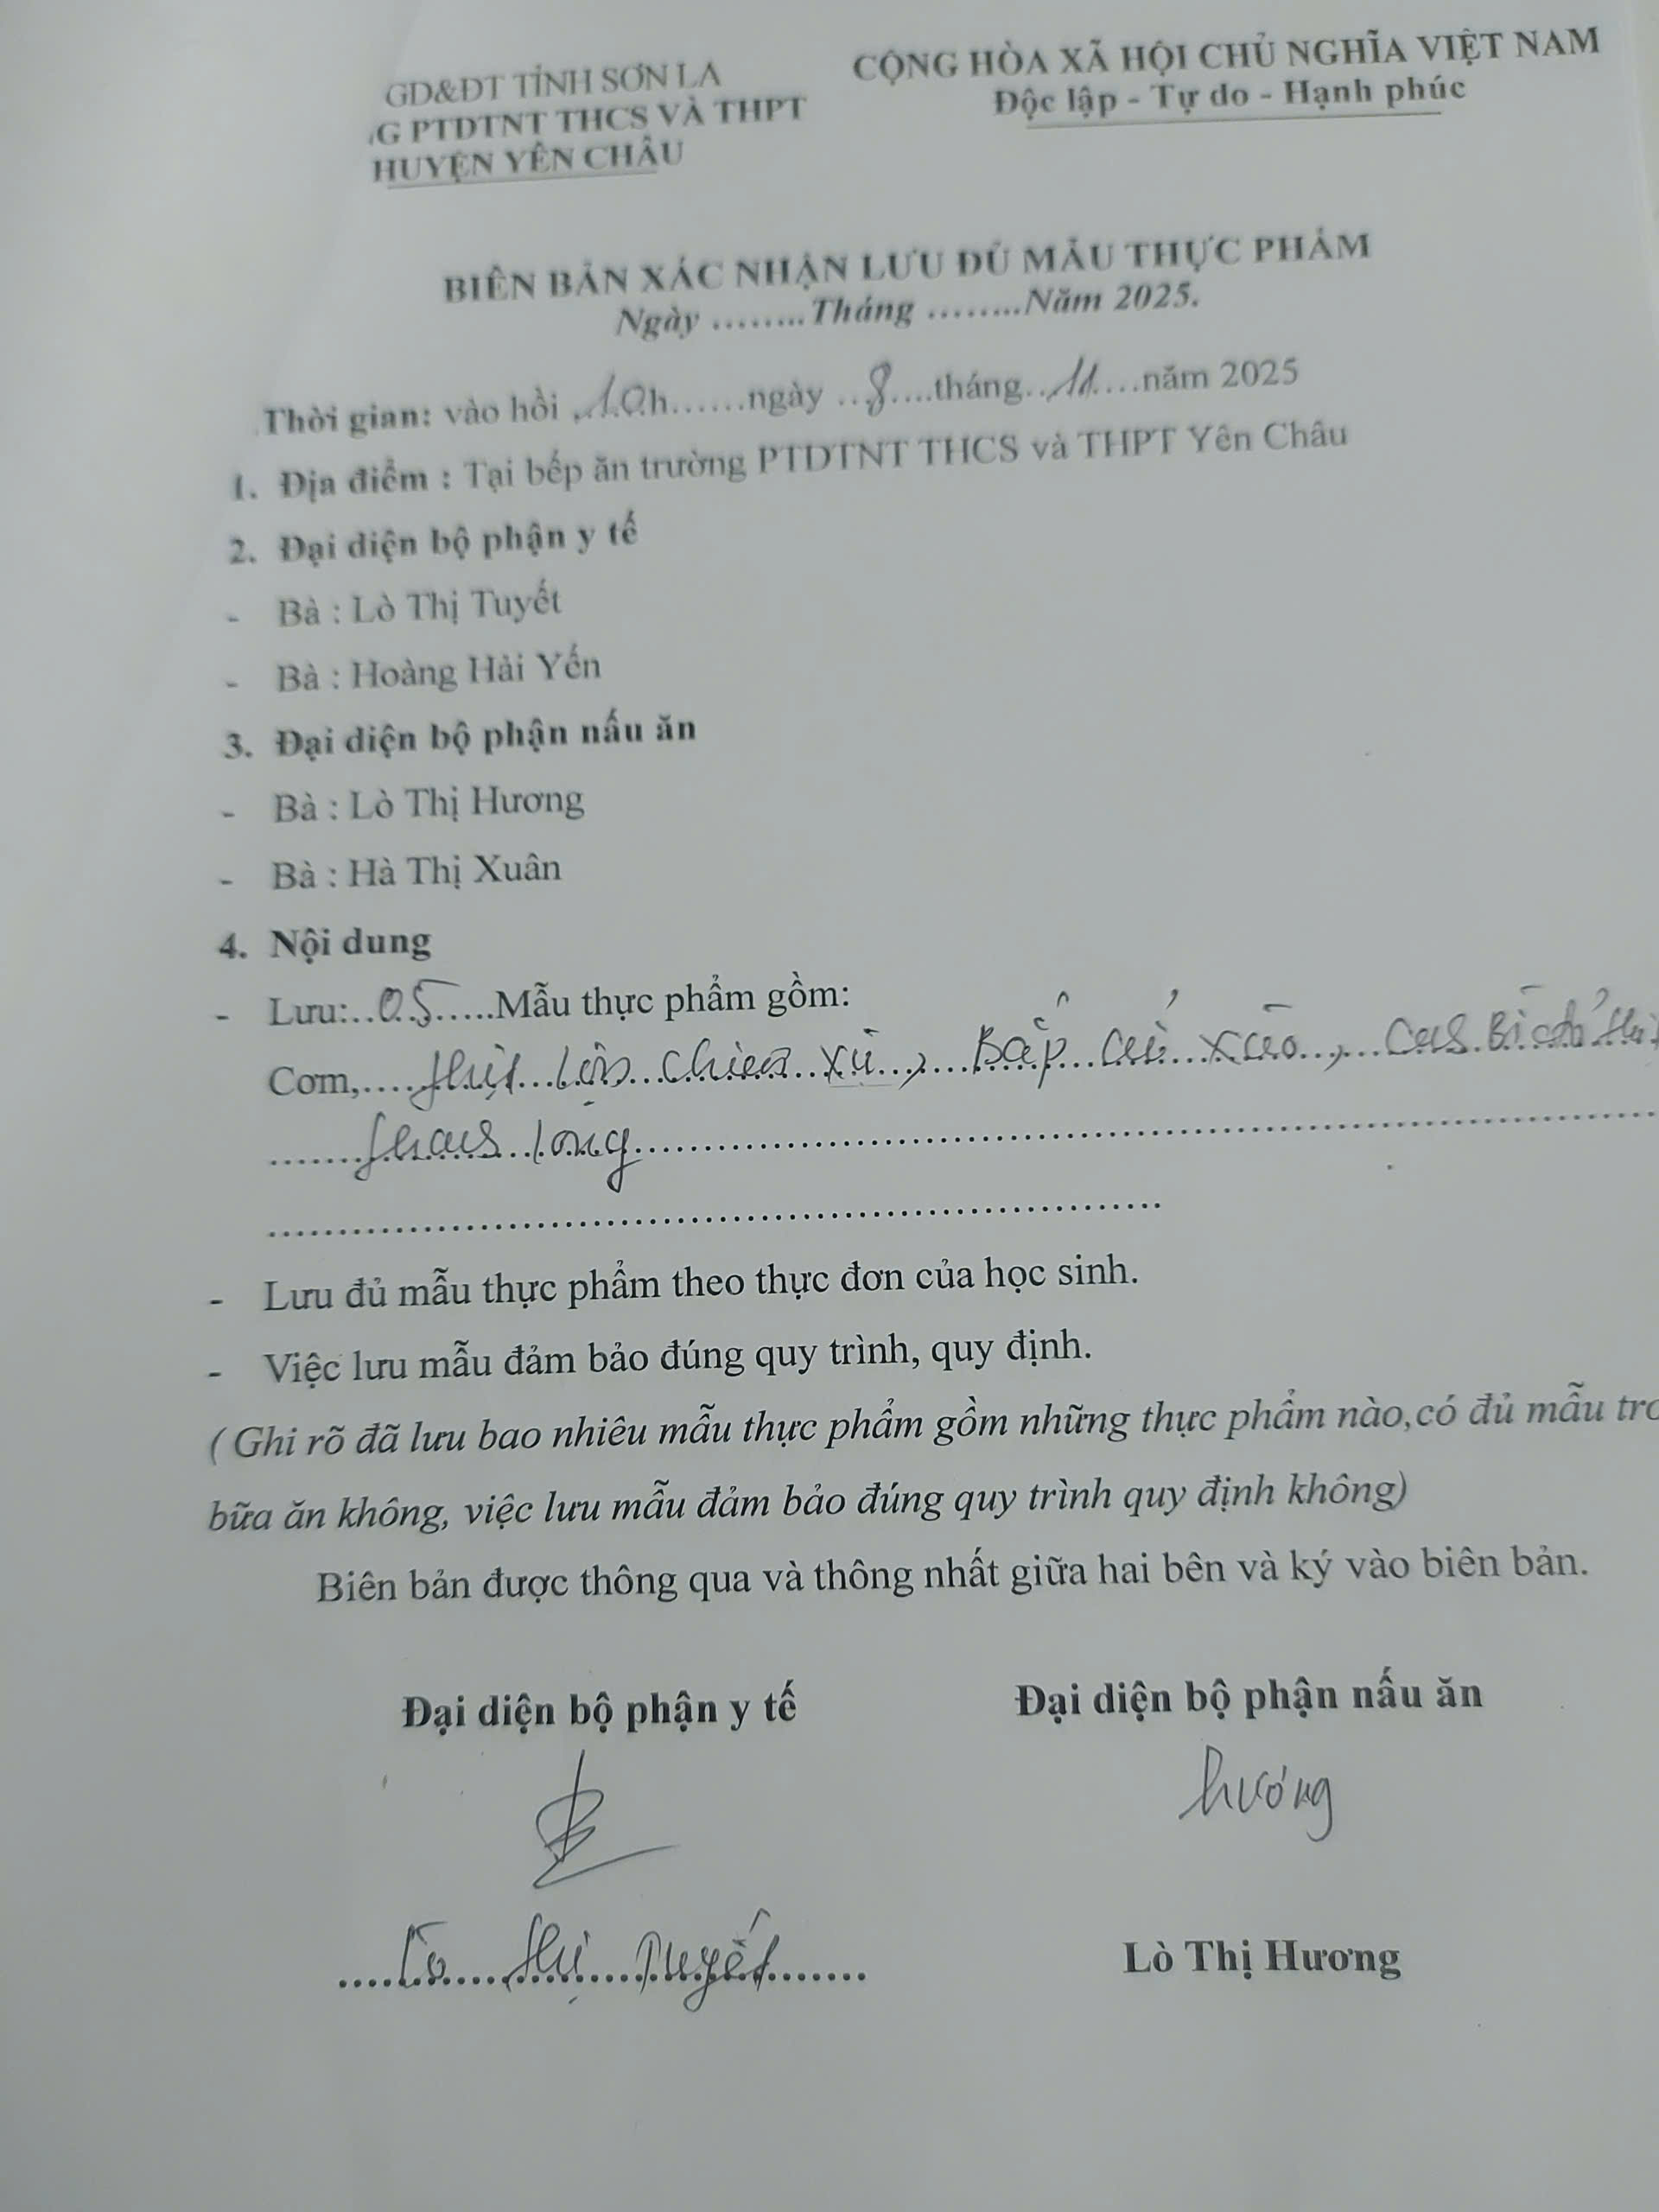 GD&ĐT TỈNH SƠN LA
G PTDTNT THCS VÀ THPT
HUYỆN YÊN CHÂU
CỘNG HÒA XÃ HỘI CHỦ NGHĨA VIỆT NAM
Độc lập - Tự do - Hạnh phúc
BIÊN BẢN XÁC NHẬN LƯU ĐỦ MẪU THỰC PHẨM
Ngày ........Tháng ........Năm 2025.
Thời gian: vào hồi 10h......ngày ..8....tháng..11....năm 2025
1. Địa điểm : Tại bếp ăn trường PTDTNT THCS và THPT Yên Châu
2. Đại diện bộ phận y tế
- Bà : Lò Thị Tuyết
- Bà : Hoàng Hải Yến
3. Đại diện bộ phận nấu ăn
- Bà : Lò Thị Hương
- Bà : Hà Thị Xuân
4. Nội dung
- Lưu:..05.....Mẫu thực phẩm gồm:
Cơm,....thịt lợn chiên xù, Bắp cải xào, canh Bí
thanh long
- Lưu đủ mẫu thực phẩm theo thực đơn của học sinh.
- Việc lưu mẫu đảm bảo đúng quy trình, quy định.
( Ghi rõ đã lưu bao nhiêu mẫu thực phẩm gồm những thực phẩm nào,có đủ mẫu tro
bữa ăn không, việc lưu mẫu đảm bảo đúng quy trình quy định không)
Biên bản được thông qua và thông nhất giữa hai bên và ký vào biên bản.
Đại diện bộ phận y tế
Đại diện bộ phận nấu ăn
Hương
Lò Thị Tuyết
Lò Thị Hương